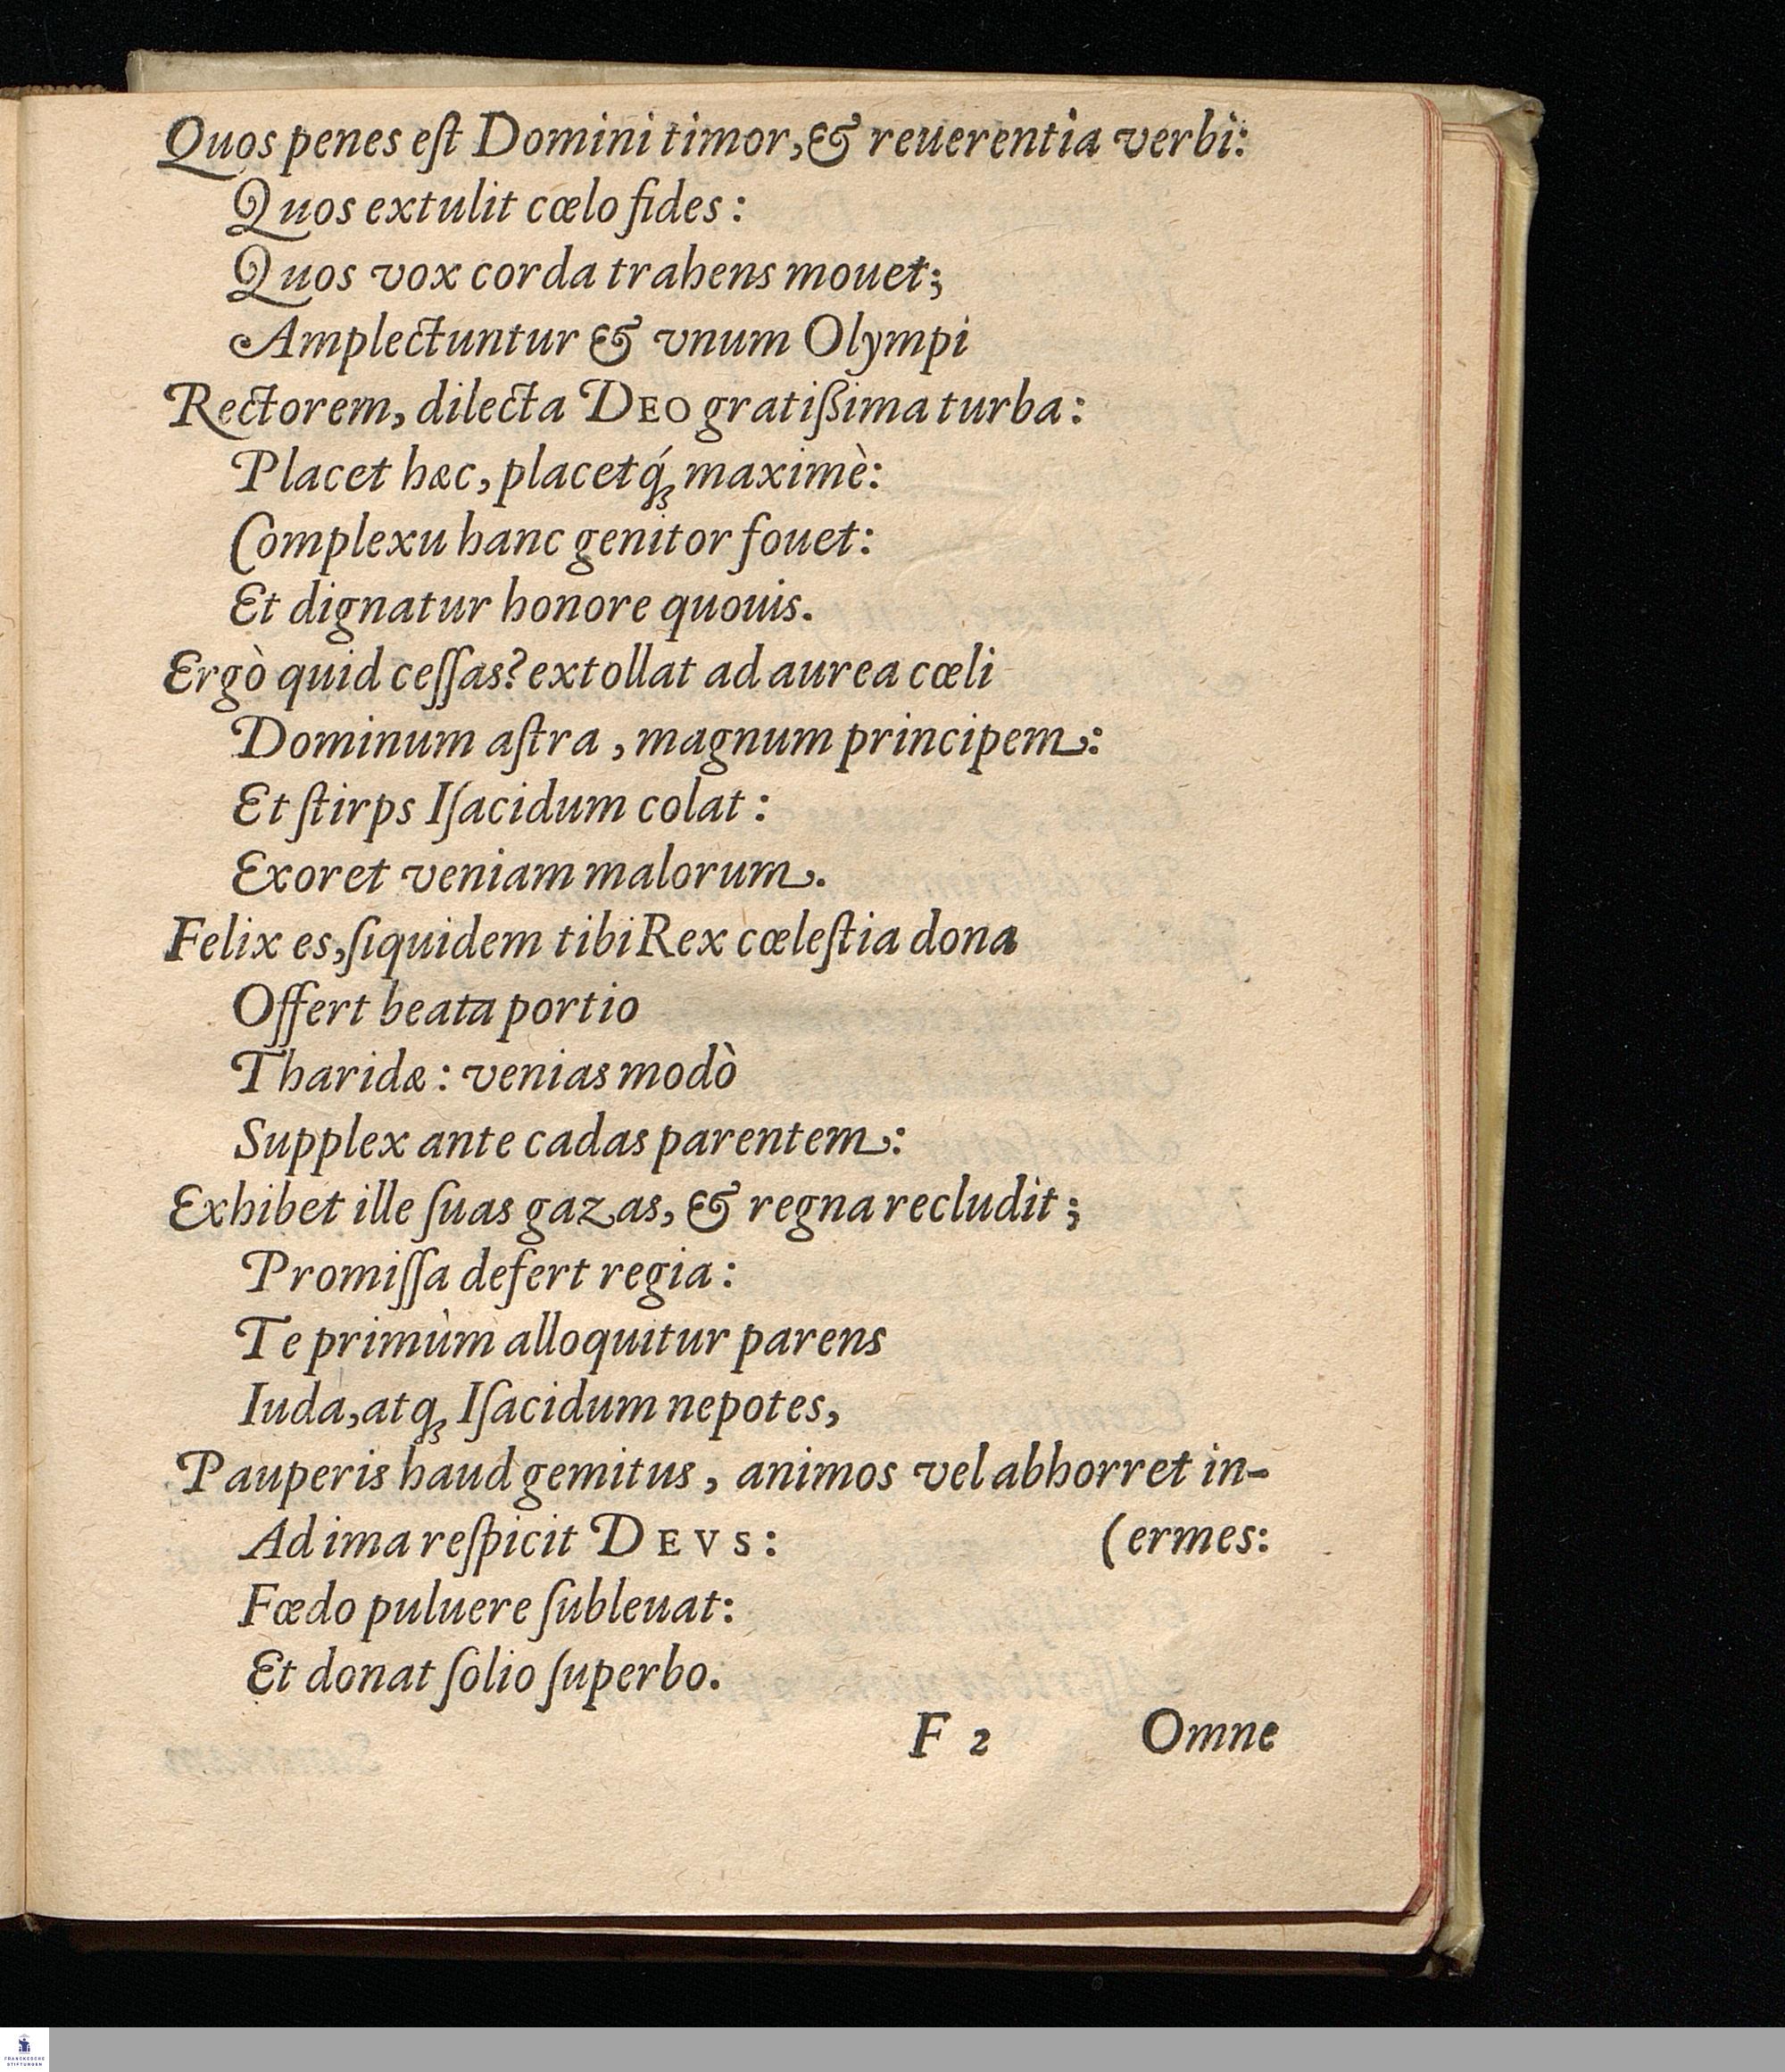 Quos penes eſt Domini timor, & reuerentia verbi:
Quos extulit cœlo fides:
Quos vox corda trahens mouet;
Amplectuntur & vnum Olympi
Rectorem, dilecta DEO gratißima turba:
Placet hæc, placetq́ꝫ maximè:
Complexu hanc genitor fouet:
Et dignatur honore quouis.
Ergò quid ceſſas? extollat ad aurea cœli
Dominum aſtra, magnum principem:
Et ſtirps Iſacidum colat:
Exoret veniam malorum.
Felix es, ſiquidem tibi Rex cœleſtia dona
Offert beata portio
Tharidæ: venias modò
Supplex ante cadas parentem:
Exhibet ille ſuas gazas, & regna recludit;
Promiſſa defert regia:
Te primùm alloquitur parens
Iuda, atqꝫ Iſacidum nepotes,
Pauperis haud gemitus, animos vel abhorret in-
Ad ima reſpicit DEVS: (ermes:
Fœdo puluere ſubleuat:
Et donat ſolio ſuperbo.
F 2 Omne
FRANCKESCHE
STIFTUNGEN